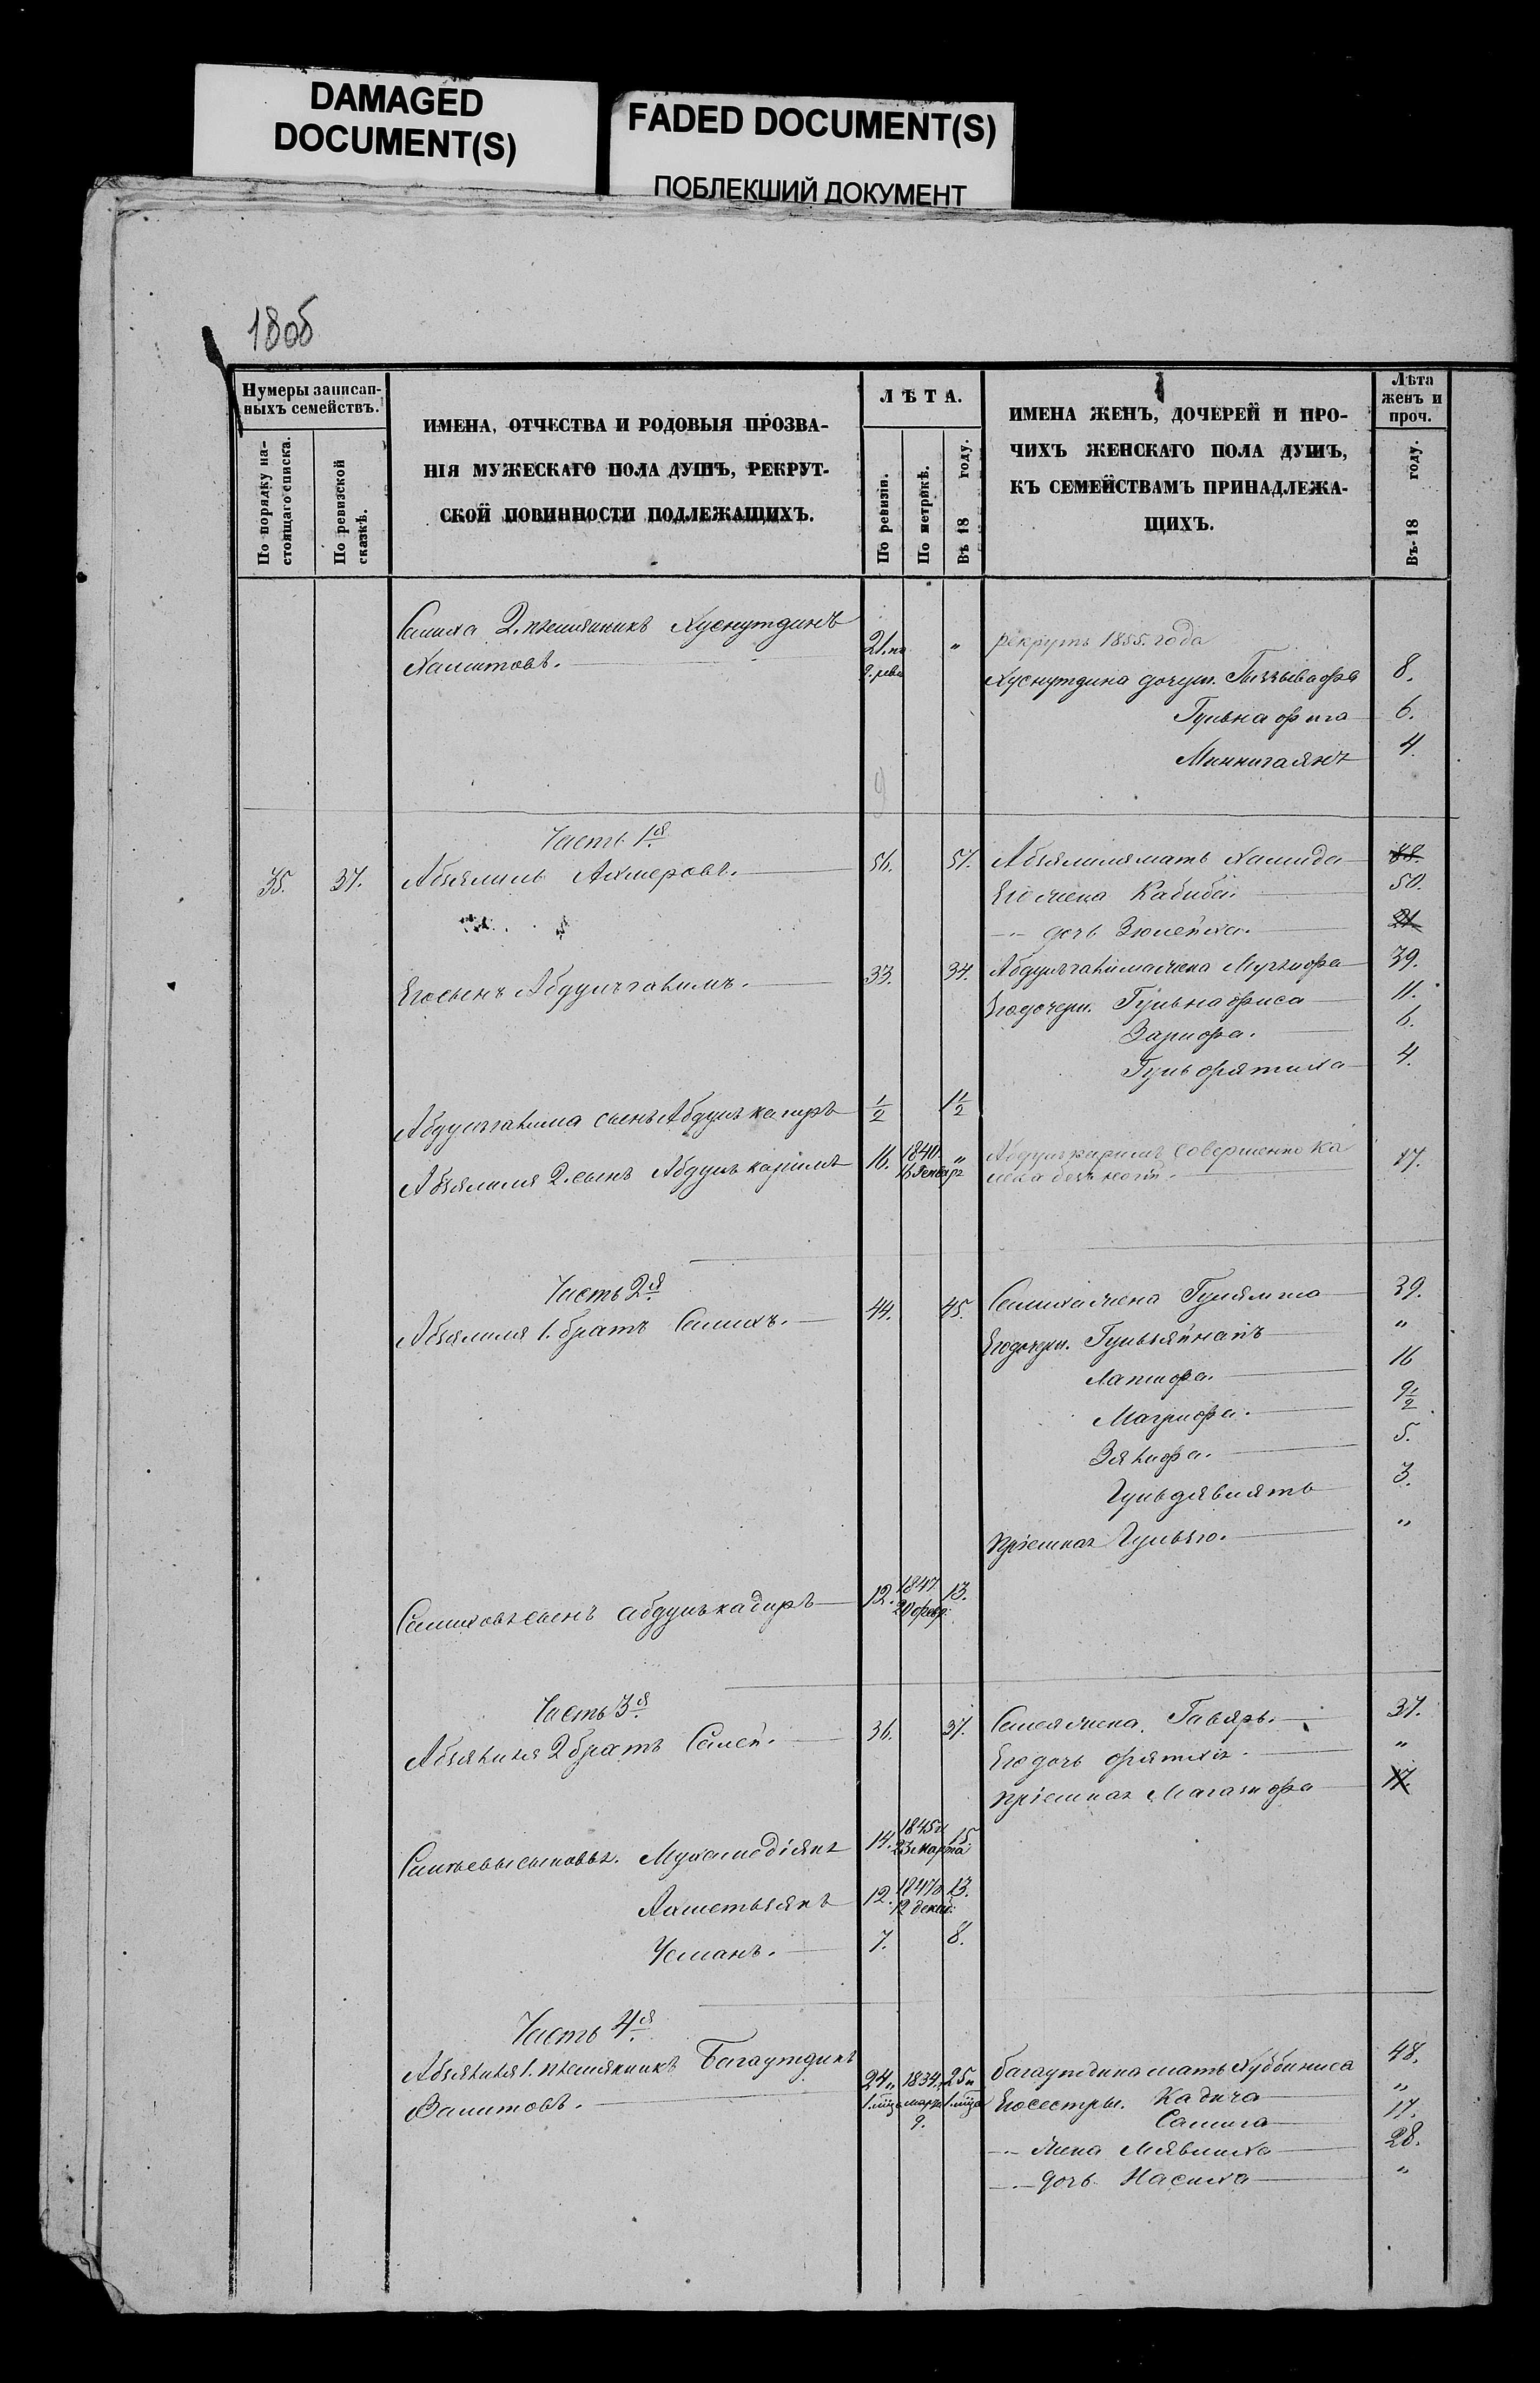 DAMAGED
DOCUMENT(S)
FADED DOCUMENT(S)
ПОБЛЕКШИЙ ДОКУМЕНТ
180б
Нумеры записан-
ныхъ семействъ.
По порядку на-
стоящаго списка.
По ревизской
сказкѣ.
ИМЕНА, ОТЧЕСТВА И РОДОВЫЯ ПРОЗВА-
НІЯ МУЖЕСКАГО ПОЛА ДУШЪ, РЕКРУТ-
СКОЙ ПОВИННОСТИ ПОДЛЕЖАЩИХЪ.
ЛѢТА.
По ревизіи.
По метрикѣ.
Въ 18 году.
ИМЕНА ЖЕНЪ, ДОЧЕРЕЙ И ПРО-
ЧИХЪ ЖЕНСКАГО ПОЛА ДУШЪ,
КЪ СЕМЕЙСТВАМЪ ПРИНАДЛЕЖА-
ЩИХЪ.
Лѣта
женъ и
проч.
Въ 18 году.
Салиха 2. племянникъ Хуснутдинъ
Хамитовъ. 21. по 9. рев. „ рекрутъ 1855. года
Хуснутдина дочери. 8.
Гульнафига 6.
Миннигаянъ 4.
Часть 1я
35. 37. Абзялилъ Ахмеровъ. 56. 57. Абзялиля мать Хамида 88.
Его жена Кабиба. 50.
-"- дочь Зюлейха. 21
Его сынъ Абдулгакимъ. 33. 34. Абдулгакима жена 39.
Его дочери. Гульнафиса 11.
Зарифа. 6.
Гульфятиха 4.
Абдулгакима сынъ Абдулкагиръ 1/2 1 1/2
Абзялиля 2. сынъ Абдулкаримъ 16. 1840. 16 Генваря „ Абдулкаримъ совершенно ка
лека безъ ноги. 17.
Часть 2я
Абзялиля 1. братъ Салихъ. 44. 45. Салиха жена 39.
Его дочери. Гульзяйнапъ „
Латифа. 16
Магрифа. 9 1/2
Зякифа. 5.
Гульдявлятъ 3.
пріемная „
Салиховъ сынъ Абдулкадиръ 12. 1847 20 февр. 13.
Часть 3я
Абзялиля 2 братъ Салей. 36. 37. Салея жена. Гавярь. 37.
Его дочь Фятиха. „
пріемная 17.
Салѣевы сыновья. Мухамедіянъ 14. 1845 г. 23 марта 15.
Ахметьянъ 12. 1847 г. 12 декаб. 13.
Усманъ. 7. 8.
Часть 4я
Абзялиля 1. племянникъ Багаутдинъ
Валитовъ. 24 „ 1834. марта 9. 25 „ Багаутдина мать Хуббиниса 48.
Его сестры. Кадича „
Салига 17.
-"- жена Мявлиха 28.
-"- дочь Насиха „